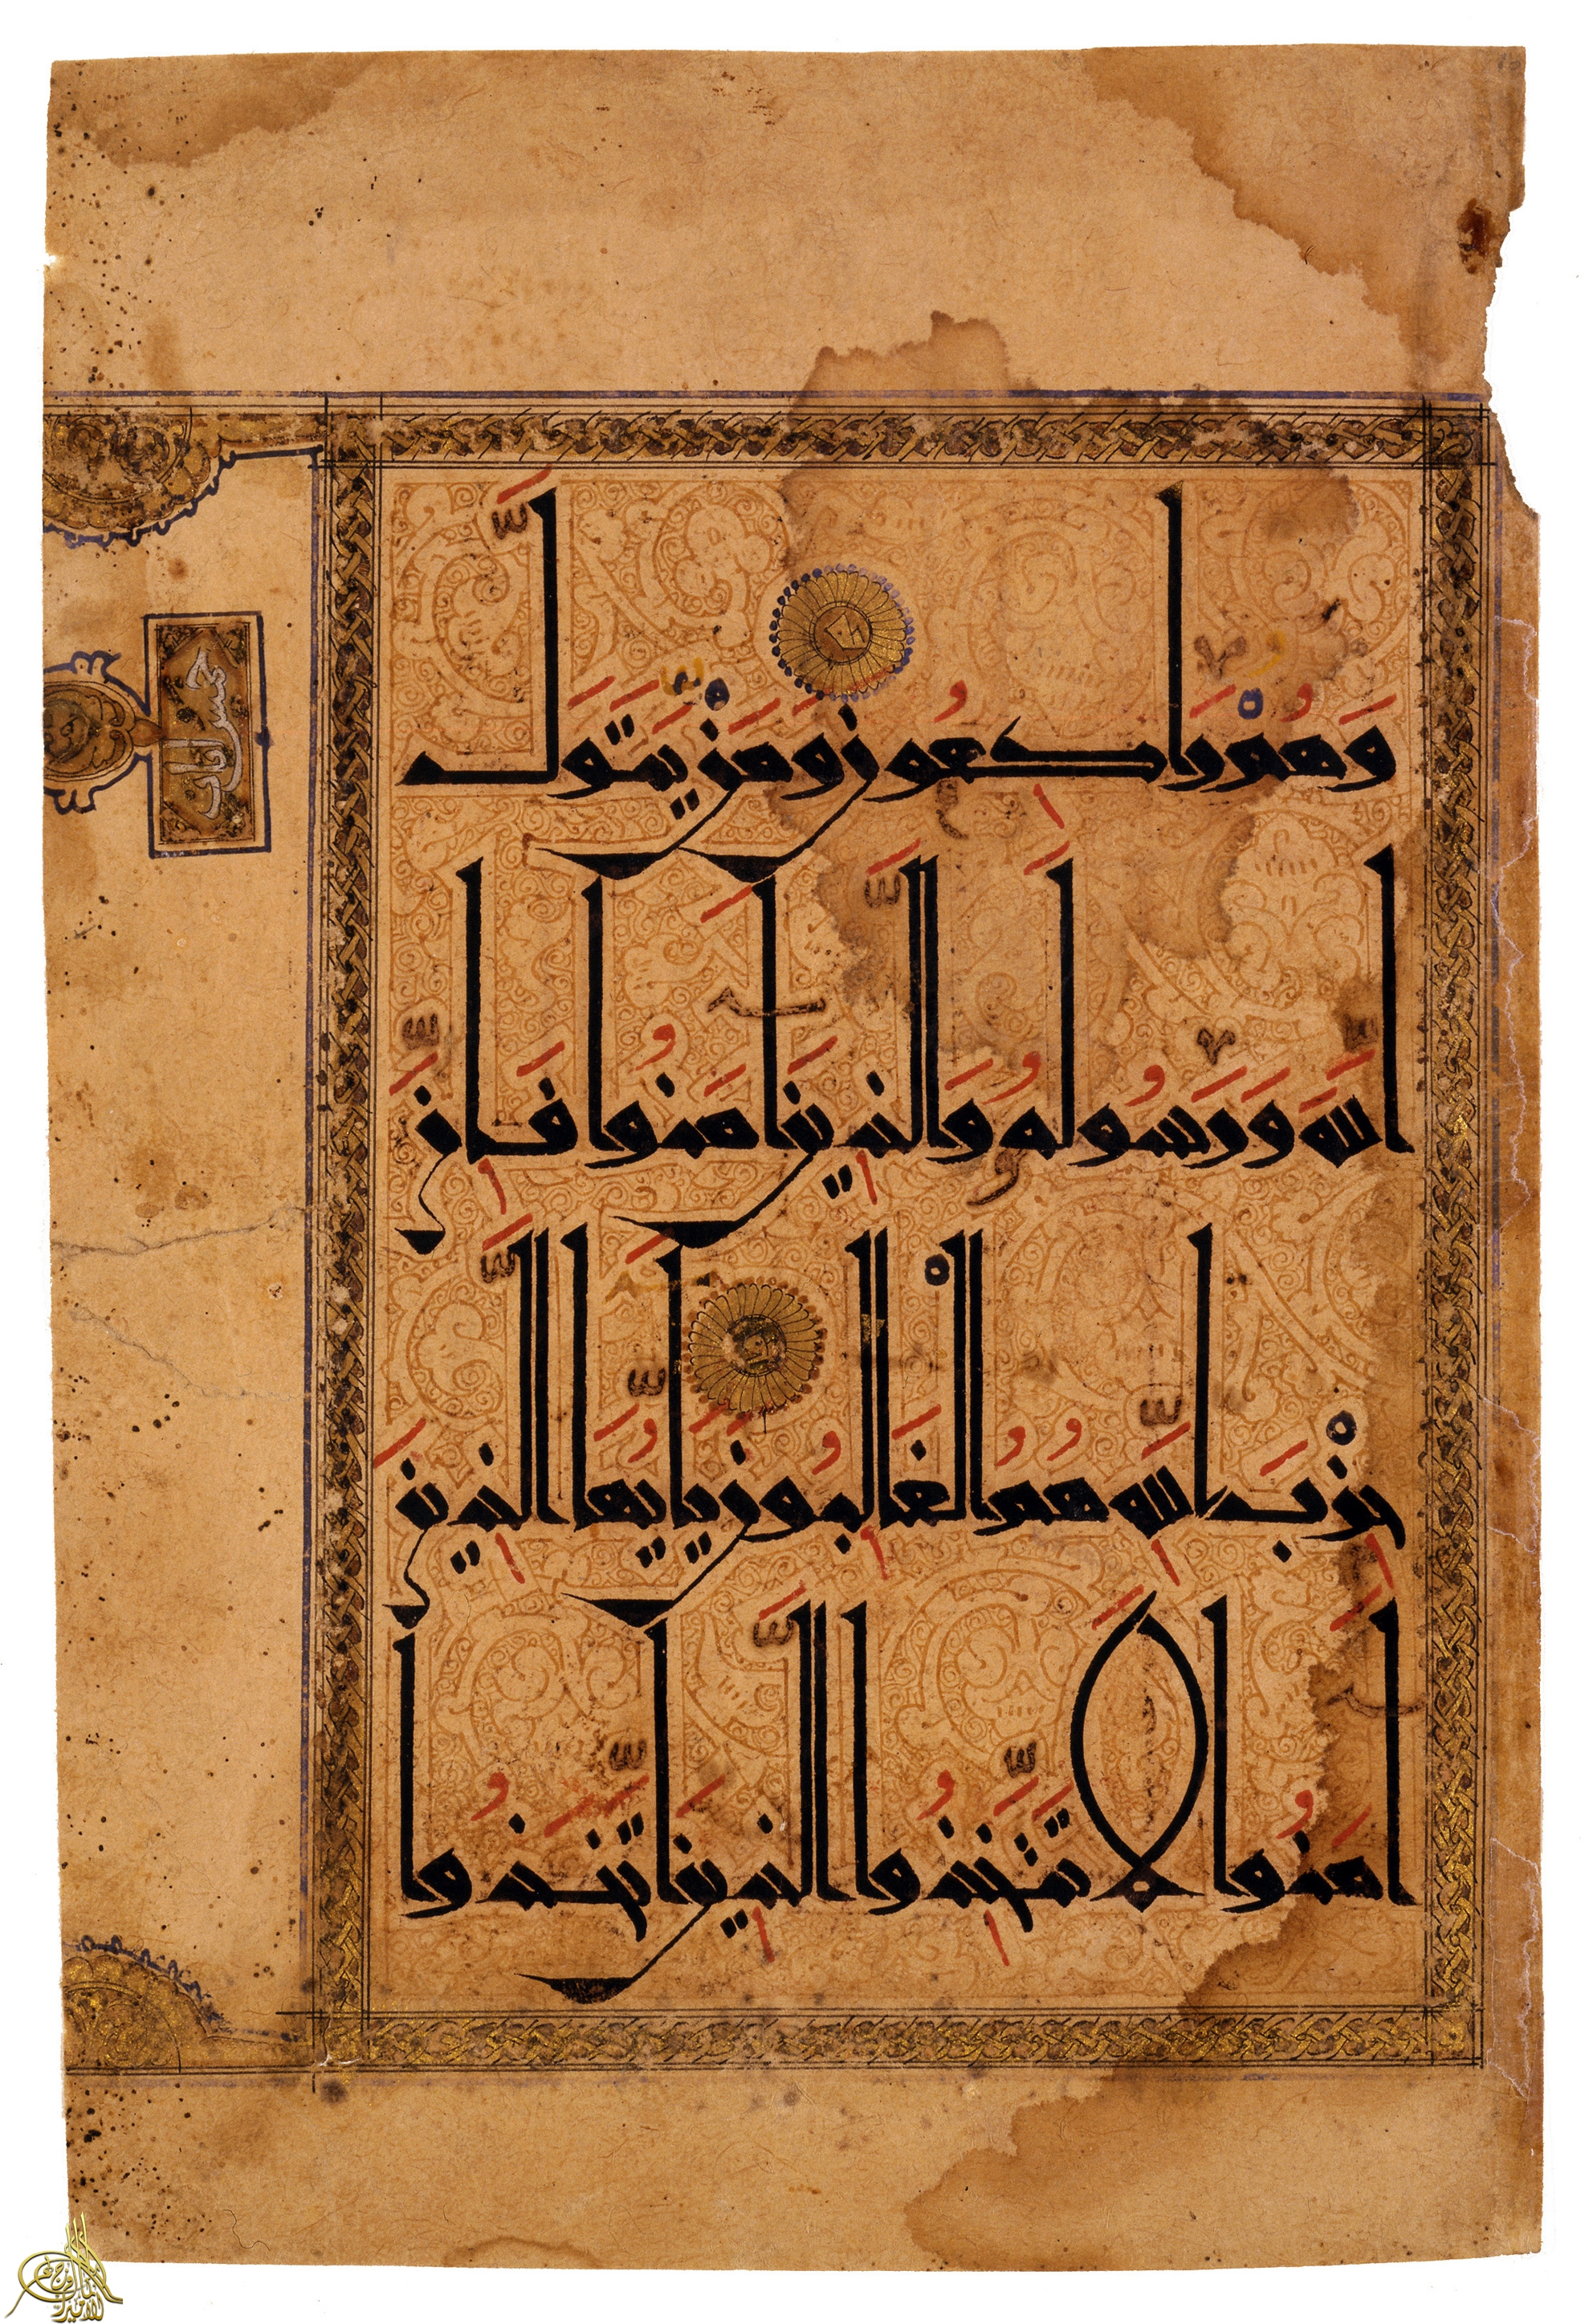 وَهُمْ رَاكِعُونَ وَمَنْ يَتَوَلَّ
اللَّهَ وَرَسُولَهُ وَالَّذِينَ آمَنُوا فَإِنَّ
حِزْبَ اللَّهِ هُمُ الْغَالِبُونَ يَأَيُّهَا الَّذِينَ
آمَنُوا لَا تَتَّخِذُوا الَّذِينَ اتَّخَذُوا
خمس ايات